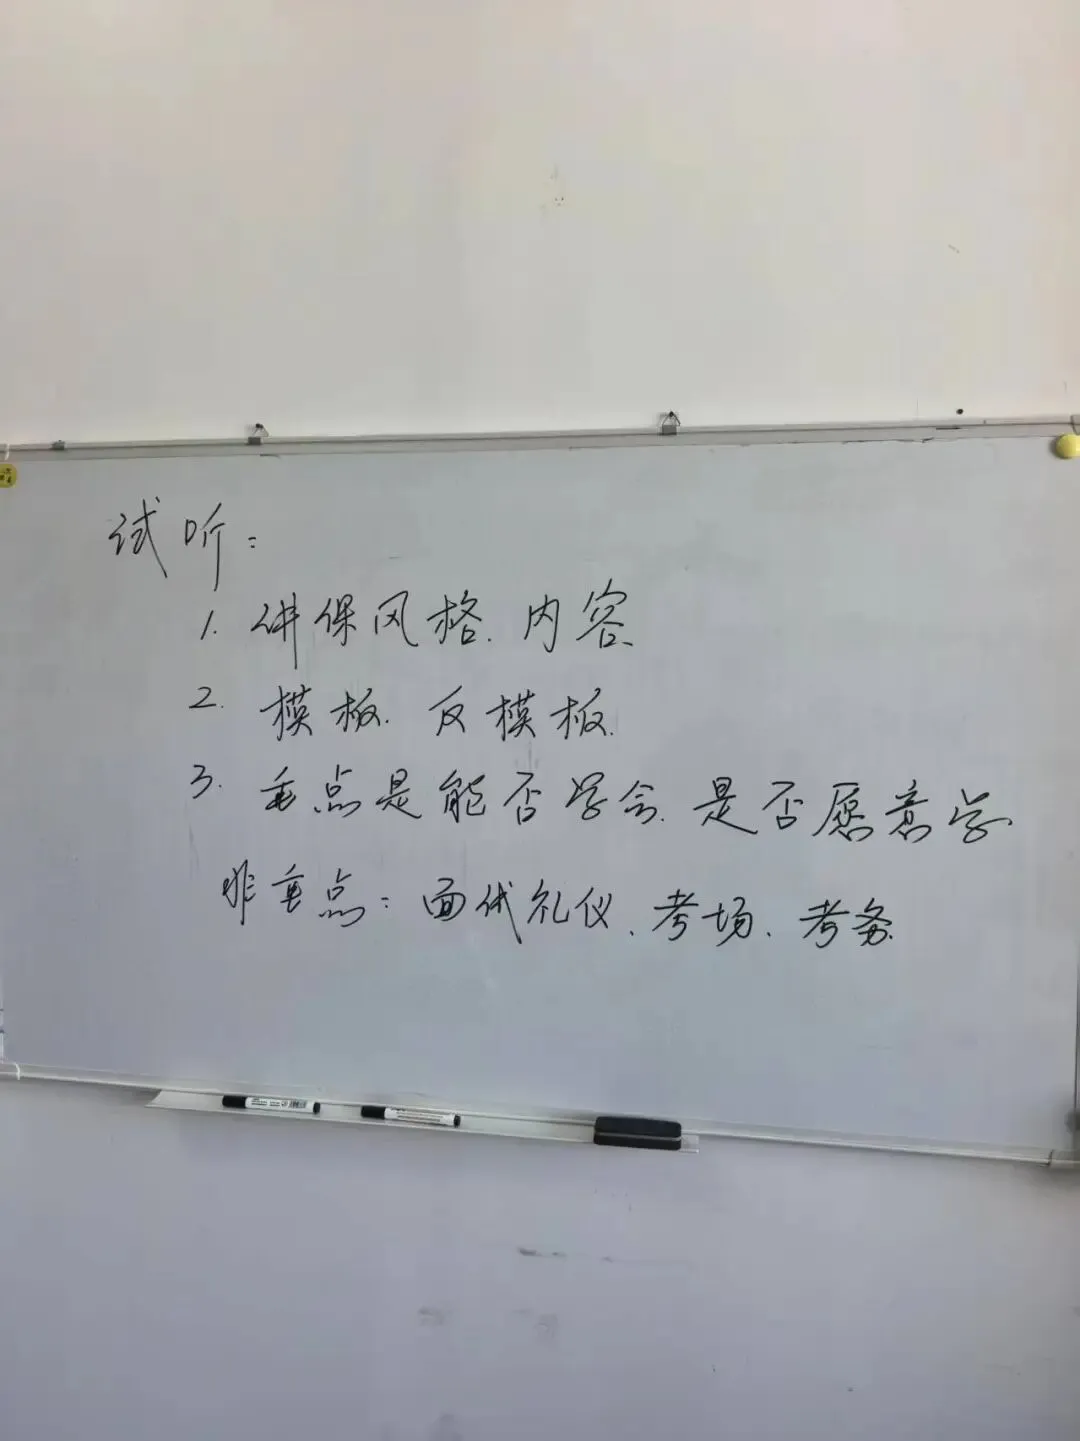 试听：
1. 讲保风格、内容
2. 模板、反模板
3. 重点是能否学会、是否愿意学
非重点：面代礼仪、考场、考务